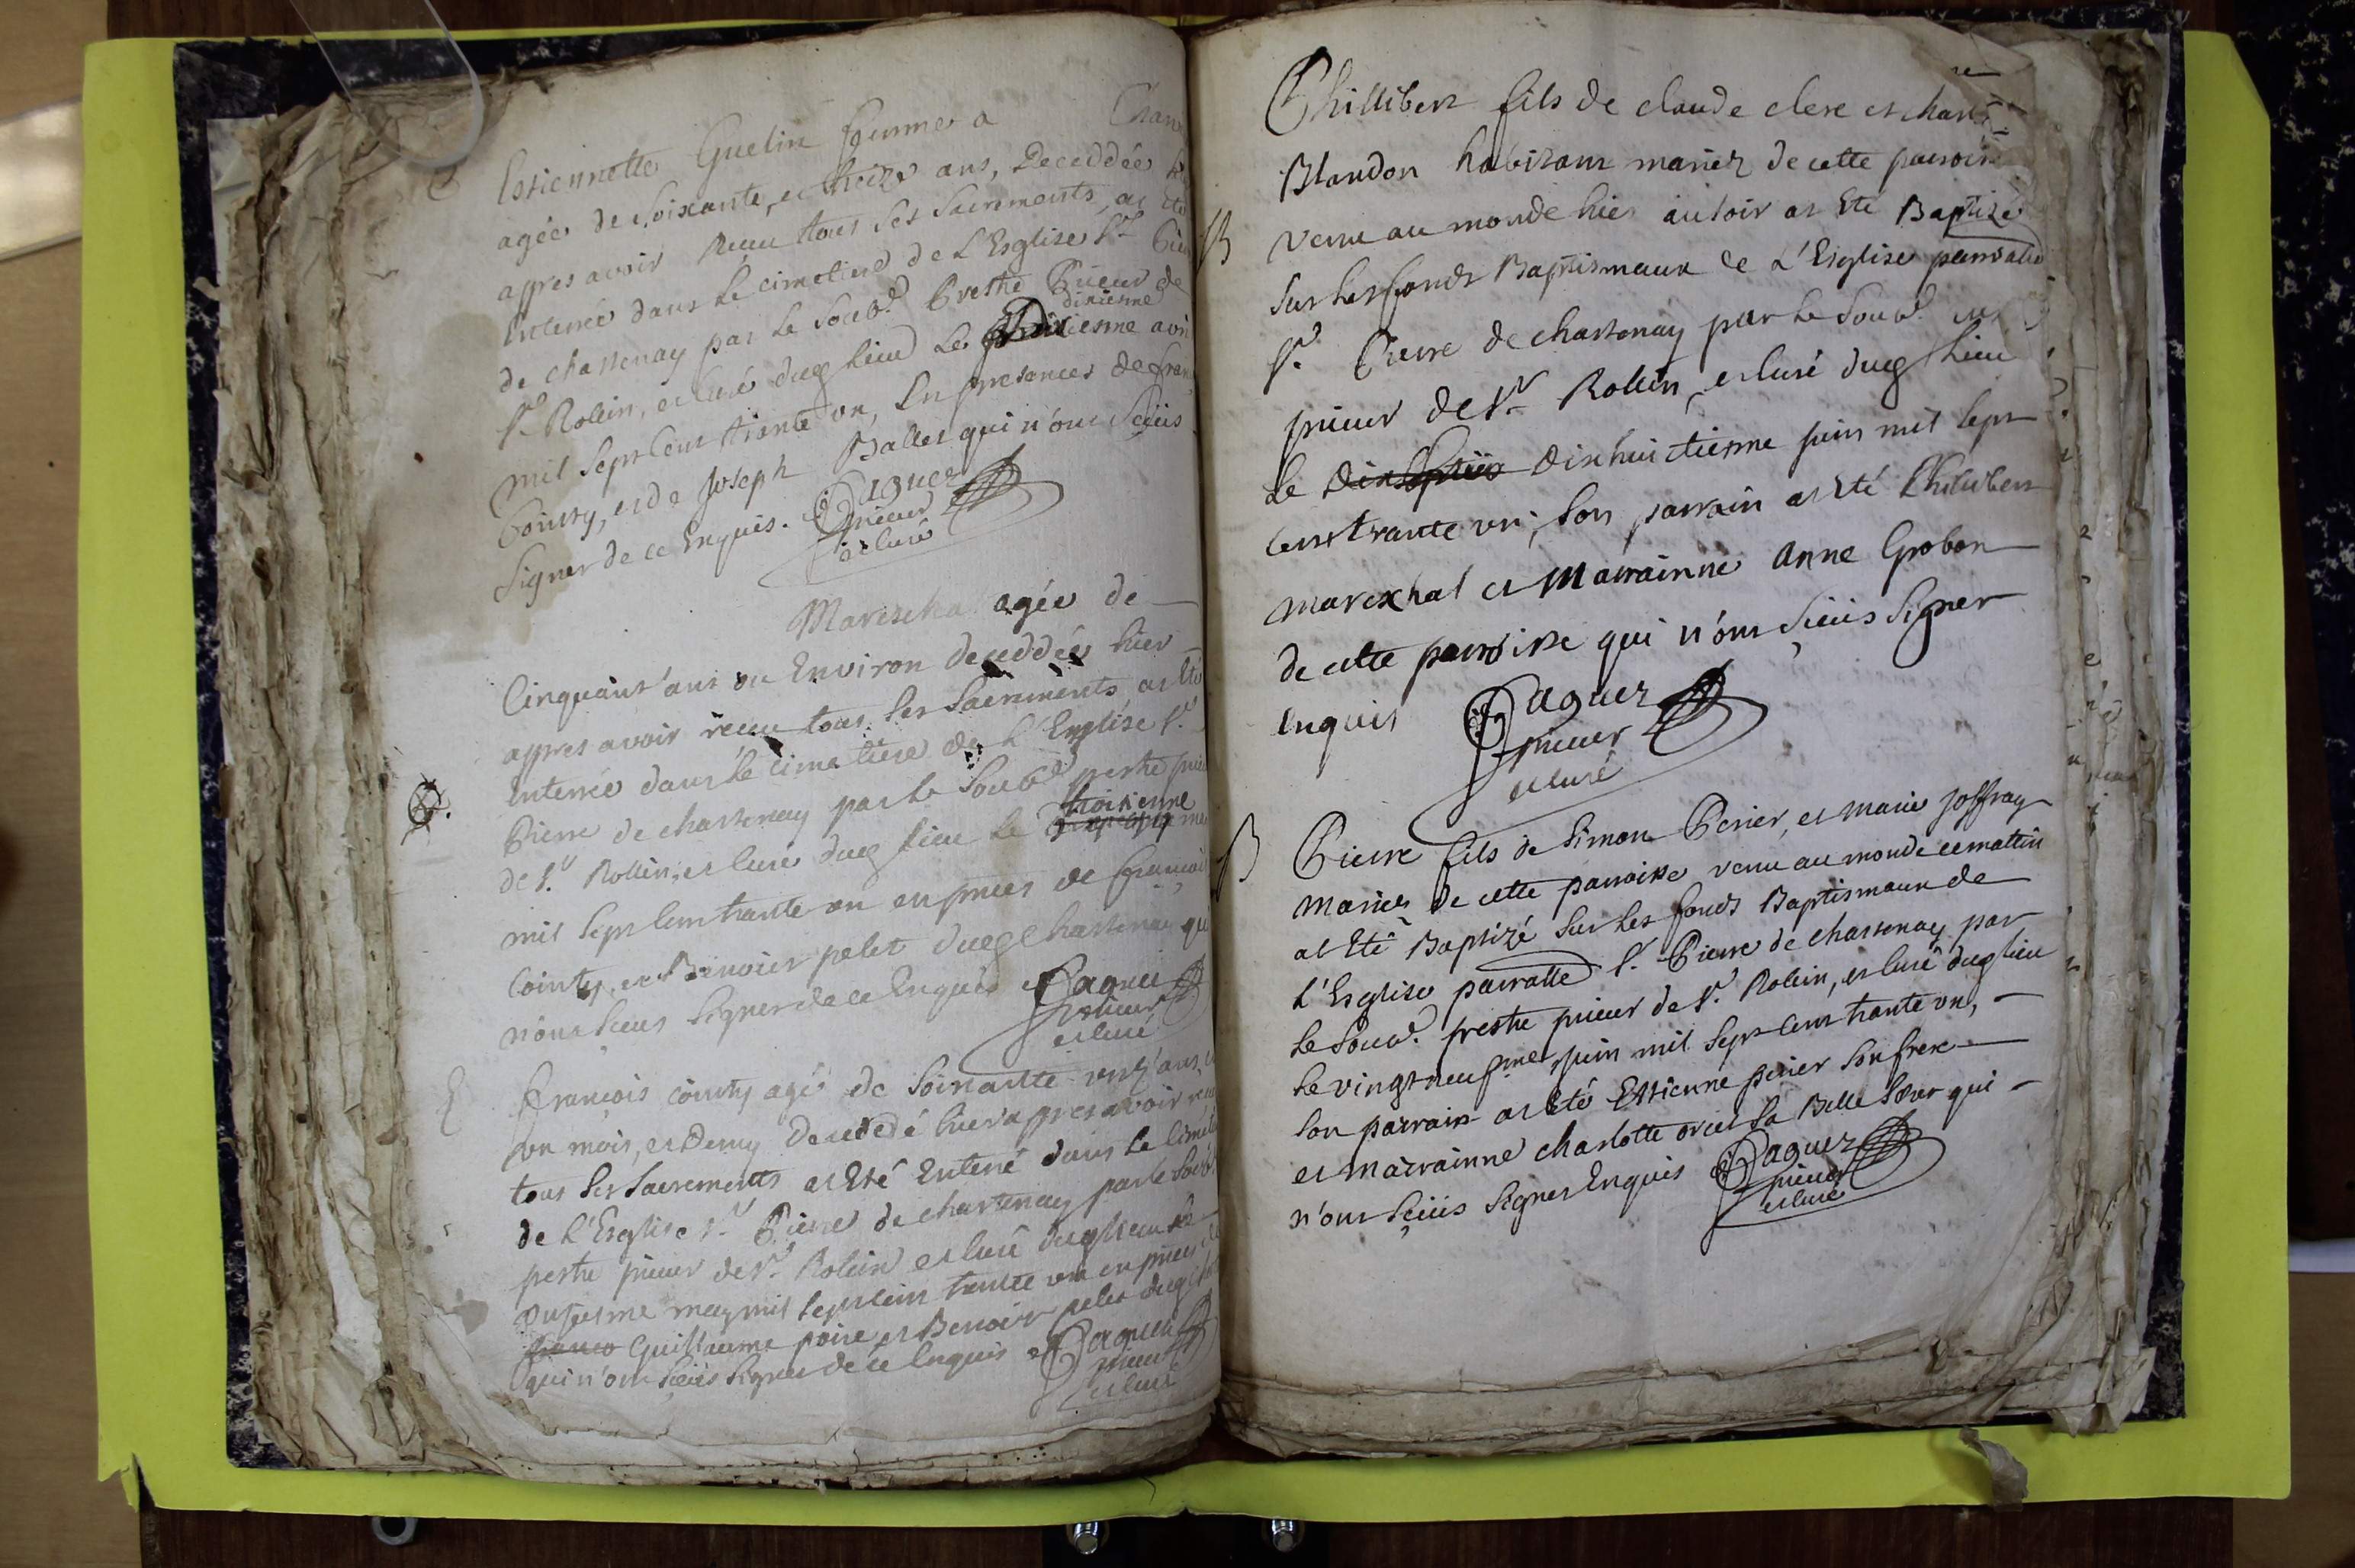 Estiennette Guelin femme a
agée de soixante, et treize ans, Deceddée
appres avoir Receu tous ses Sacrements, at Eté
Enterrée dans le cimetiere de L'Esglise St
de chastenay par le Soub.d Prestre Prieur de
dixiesme
St Rollin, et Curé dug lieu Le avri
mil Sept Cent trante un, En presences de fran
Cointy, et de Joseph Ballet qui n'ont Sçeüs
Signer de ce Enquis. Paguez
prieur
et Curé
Mareschal agée de
Cinquant'ans ou Environ deceddée hier
appres avoir receu tous Ses Sacrements at Eté
Enterrée dans le cimetiere de L'Esglise St
Pierre de chastenay par le Soub.d prestre prieu
troisiesme
de St Rollin, et Curé dug lieu Le
mil Sept Cent trante un en pnces de françois
Cointy, et Benoist pelet dug Chastenay qui
n'ont Sceus Signer de ce Enquis Paguez
prieur
et Curé
E
François cointy agé de Soixante onz'ans,
un mois, et Demy Deceddé hier appres avoir receu
tous Ses Sacrements at Eté Enterré dans le Cimet
de L'Esglise St Pierre de chastenay par le Soub.
prestre prieur de St Rolin et Curé dug lieu Le
may mil Sept Cent trante un en pnces de
Guillaume poire et Benoist pelet dug
qui n'ont Sçeüs Signer de ce Enquis Paguez
prieur
et Curé
Phillibert fils de claude clere et charl
Blandon habitans mariez de cette parroisse
B
venu au monde hier au soir at Eté Baptizé
Sur Les fonds Baptismaux de L'Esglise parroalle
St Pierre de chastenay par Le Soub.d
prieur de St Rollin, et Curé dug Lieu
Le Dixhuictiesme juin mil Sept
Cent trante un; Son parrain at Eté Philibert
mareschal et Marrainne Anne Grobon
de cette parroisse qui n'ont Sçeüs Signer
Enquis Paguez
prieur
et Curé
B
Pierre fils de Simon Perier, et marie joffray
mariez de cette parroisse venu au monde ce mattin
at Eté Baptizé Sur Les fonds Baptismaux de
L'Esglise parroalle St Pierre de chastenay par
Le Soub.d prestre prieur de St Rollin, et Curé dug lieu
Le vingt neufme juin mil Sept Cent trante un,
Son parrain at Eté Estienne perier Son frere
et Marrainne charlotte oriel Sa Belle Sœur qui
n'ont Sçeüs Signer Enquis Paguez
prieur
et Curé